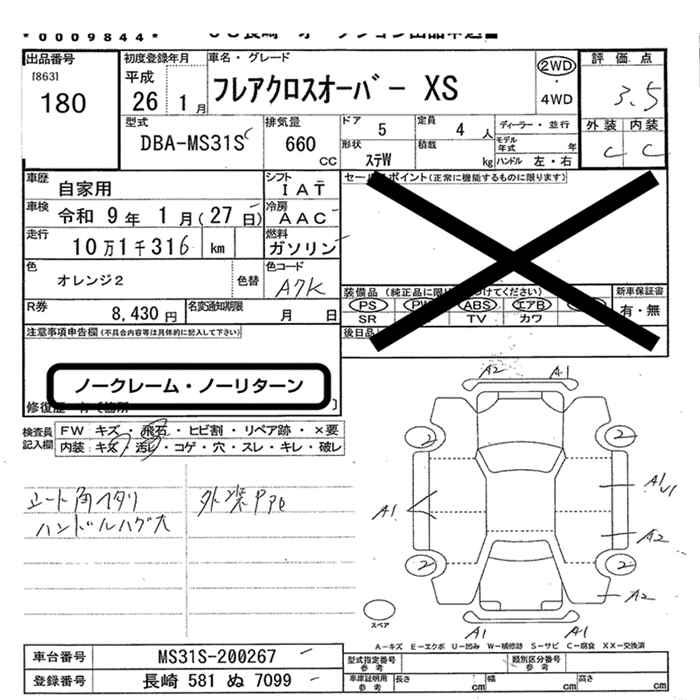 *0009844*
出品番号
[863]
180
初度登録年月
平成
26年 1月
車名・グレード
フレアクロスオーバー XS
2WD
4WD
評価点
3.5
外装 内装
C C
型式
DBA-MS31S
排気量
660
cc
ドア
5
定員
4 人
形状
ステW
積載
kg
ディーラー・並行
モデル年式 年
ハンドル 左・右
車歴
自家用
シフト
IAT
車検
令和 9年 1月(27日)
冷房
AAC
走行
10万1千316 km
燃料
ガソリン
色
オレンジ2
色替
色コード
A7K
R券
8,430円
名変通知期限
月 日
セールスポイント(正常に機能するものに限ります)
装備品
PS ABS エアB
SR TV カワ
新車保証書
有・無
後日品
注意事項申告欄(不具合内容等は具体的に記入して下さい)
ノークレーム・ノーリターン
検査員記入欄
FW キズ・飛石・ヒビ割・リペア跡・×要
内装:キズ・汚レ・コゲ・穴・スレ・キレ・破レ
ハンドルハゲ大
A2 A1
2 2
A1 A1 U1
A2
2 2
A2
A1 A1
スペア
A-キズ E-エクボ U-凹み W-補修跡 S-サビ C-腐食 XX-交換済
車台番号
MS31S-200267
登録番号
長崎 581 ぬ 7099
型式指定番号 参考
類別区分番号 参考
車庫証明用 参考
長さ cm 幅 cm 高さ cm